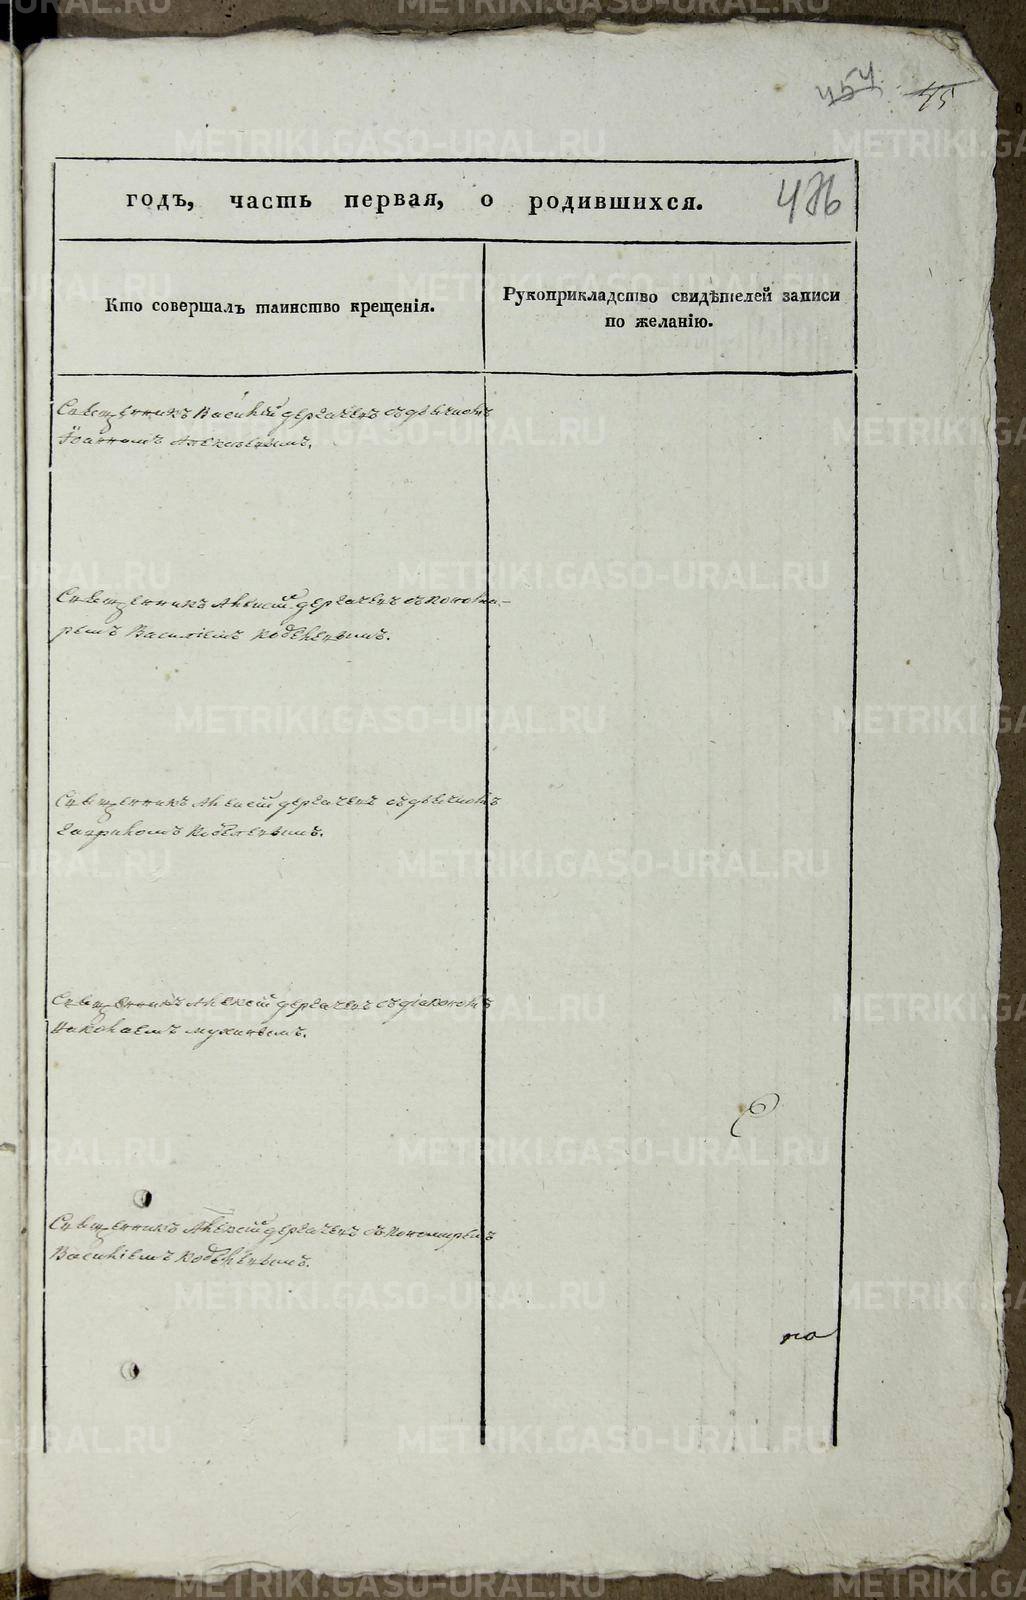 454 45
годъ, часть первая, о родившихся. 476
Кто совершалъ таинство крещенія.
Рукоприкладство свидѣтелей записи
по желанію.
Священникъ Василій Дергачевъ съ дьячкомъ
Іоанномъ
Священникъ Алексій Дергачевъ съ понома-
ремъ Василіемъ Кобелевымъ.
Священникъ Алексій Дергачевъ съ дьячкомъ
Гавриломъ Кобелевымъ.
Священникъ Алексій Дергачевъ съ діакономъ
Николаемъ Мухинымъ.
Священникъ Алексій Дергачевъ съ пономаремъ
Василіемъ Кобелевымъ.
по
METRIKI.GASO-URAL.RU